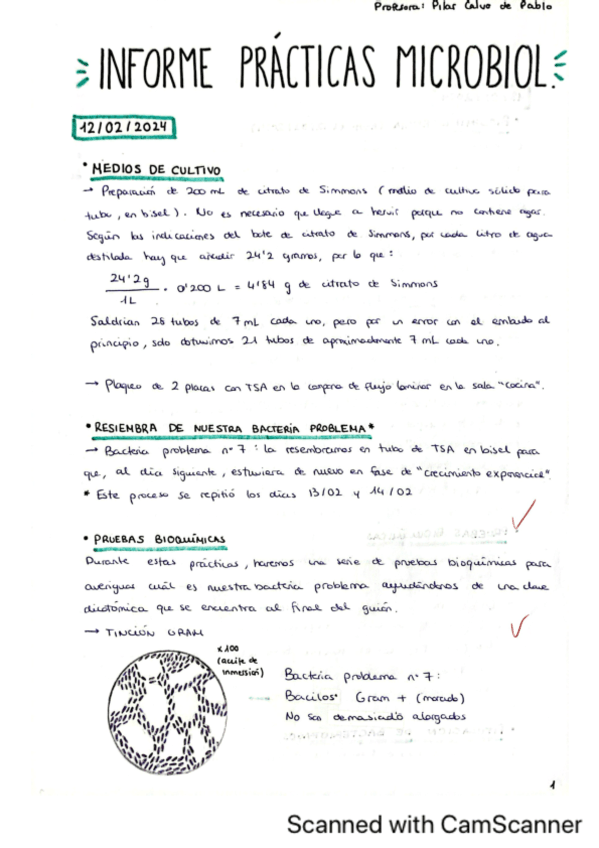 Profesora: Pilar Calvo de Pablo
INFORME PRÁCTICAS MICROBIOL.
12/02/2024
* MEDIOS DE CULTIVO
→ Preparación de 200 mL de citrato de Simmons (medio de cultivo sólido para
tubo, en bisel). No es necesario que llegue a hervir porque no contiene agar.
Según las indicaciones del bote de citrato de Simmons, por cada litro de agua
destilada hay que añadir 24'2 gramos, por lo que:
24'2g
1L
· 0'200 L = 4'84 g de citrato de Simmons
Saldrían 28 tubos de 7 mL cada uno, pero por un error con el embudo al
principio, solo obtuvimos 21 tubos de aproximadamente 7 mL cada uno.
→ Plaqueo de 2 placas con TSA en la campana de flujo laminar en la sala "cocina".
* RESIEMBRA DE NUESTRA BACTERÍA PROBLEMA*
→ Bacteria problema nº 7: la resembramos en tubo de TSA en bisel para
que, al día siguiente, estuviera de nuevo en fase de "crecimiento exponencial".
* Este proceso se repitió los días 13/02 y 14/02
* PRUEBAS BIOQUÍMICAS
Durante estas prácticas, haremos una serie de pruebas bioquímicas para
averiguar cuál es nuestra bacteria problema ayudándonos de una clave
dicotómica que se encuentra al final del guión.
→ TINCIÓN GRAM
x100
(aceite de
inmersión)
Bacteria problema nº 7:
Bacilos Gram + (morado)
No son demasiado alargados
1
Scanned with CamScanner